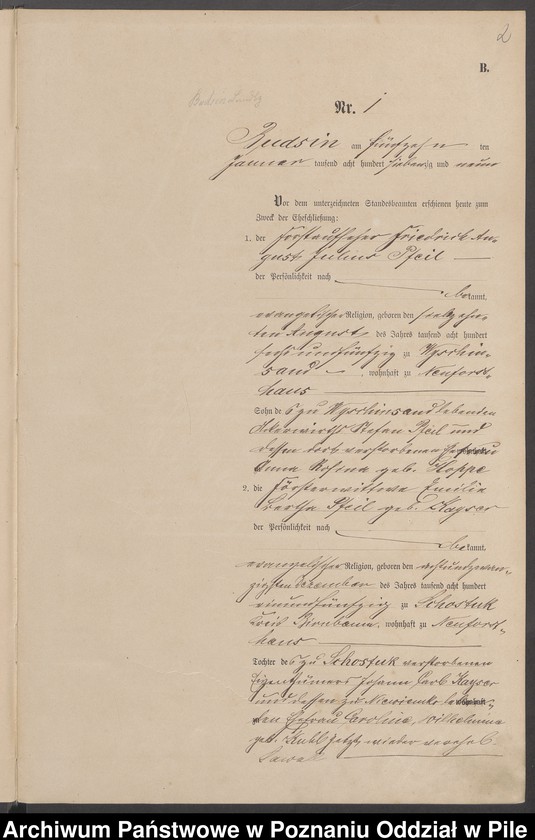 2
B.
Nr. 1
Budsin am fünfzehn ten
Januar tausend acht hundert siebenzig und neun
Vor dem unterzeichneten Standesbeamten erschienen heute zum
Zweck der Eheschließung:
1. der Forstaufseher Friedrich Au-
gust Julius Pfeil
der Persönlichkeit nach
bekannt,
evangelischer Religion, geboren den siebzehn-
ten August des Jahres tausend acht hundert
sechs und fünfzig zu
sand, wohnhaft zu Neuforst-
haus
Sohn des zu lebenden
Ackerwirths Stefan Pfeil und
dessen dort verstorbenen Ehefrau
Anna Rosina geb. Hoppe
2. die Försterwittwe Emilie
Bertha Pfeil geb. Kayser
der Persönlichkeit nach
bekannt,
evangelischer Religion, geboren den
zigsten Dezember des Jahres tausend acht hundert
einundfünfzig zu Schostuk
Kreis Birnbaum, wohnhaft zu Neuforst-
haus
Tochter des zu Schostuk verstorbenen
Eigenthümers Johann Carl Kayser
und dessen zu leben-
den Ehefrau Caroline, Wilhelmine
geb. jetzt wieder verehe.
Archiwum Państwowe w Poznaniu Oddział w Pile